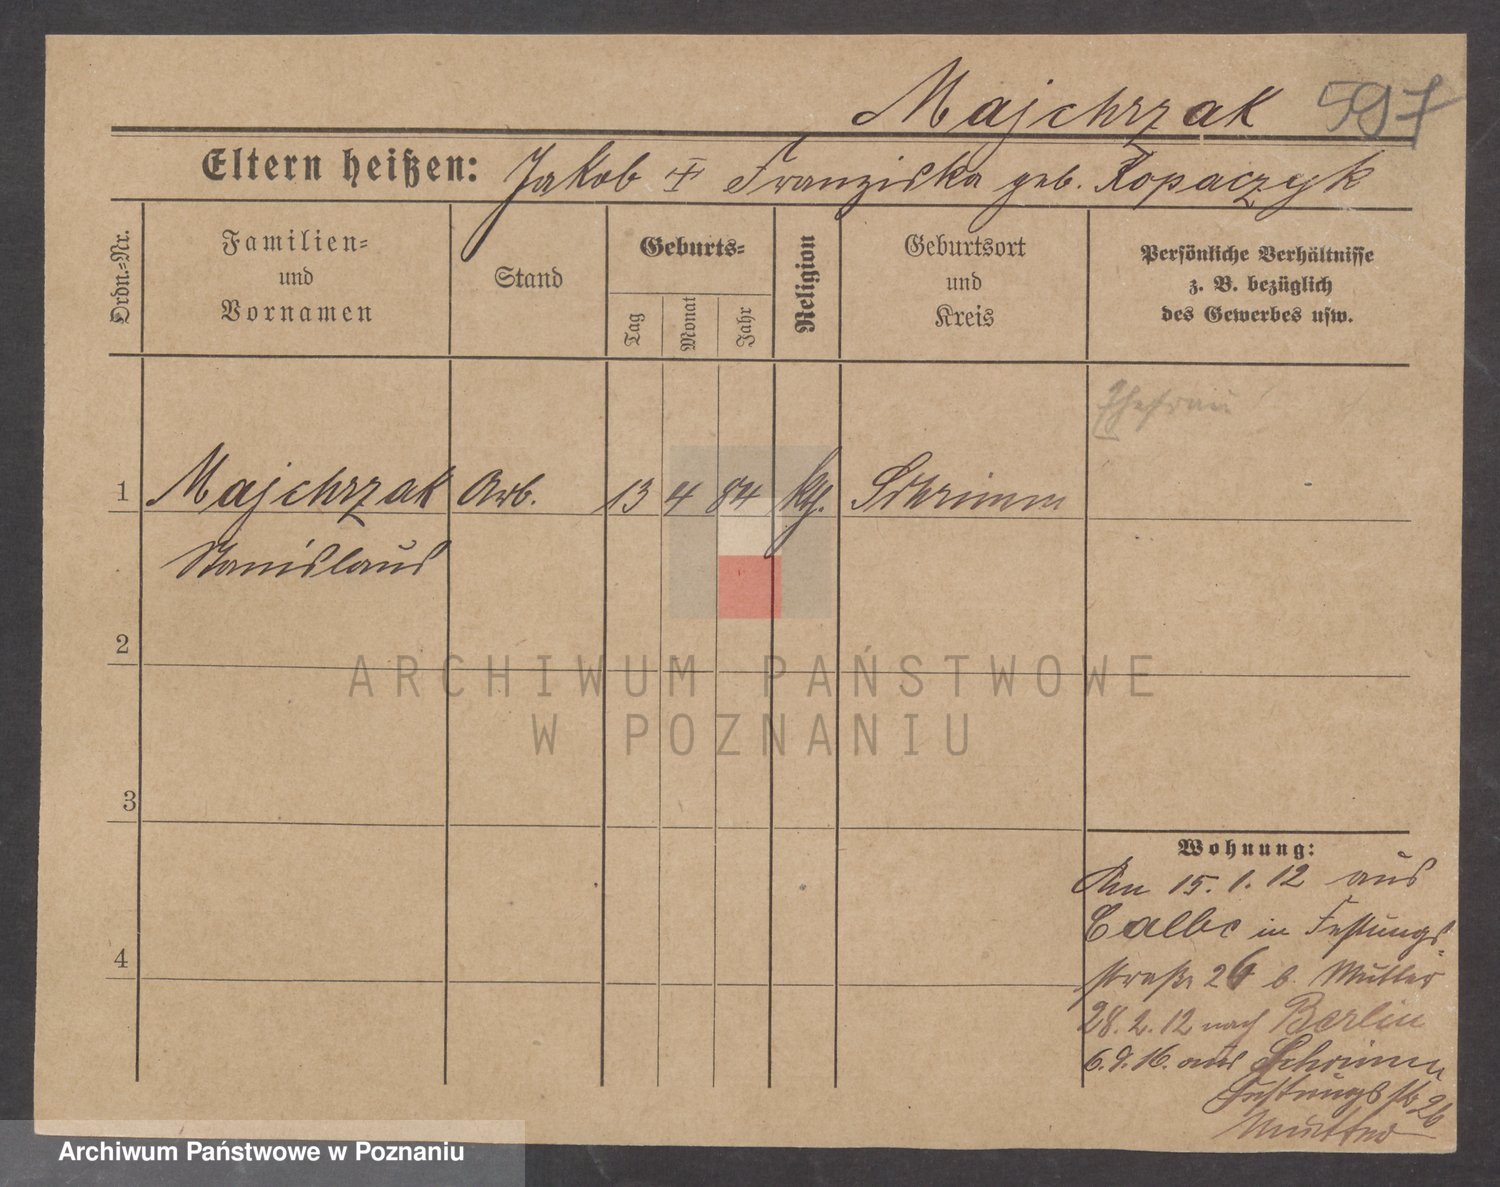 Majchrzak 597
Eltern heißen: Jakob + Franziska geb. Kopaczyk
Ordn.-Nr.
Familien-
und
Vornamen
Stand
Geburts-
Tag
Monat
Jahr
Religion
Geburtsort
und
Kreis
Persönliche Verhältnisse
z. B. bezüglich
des Gewerbes usw.
Ehefrau
1 Majchrzak Arb. 13 4 84 kth. Schrimm
Stanislaus
2
ARCHIWUM PAŃSTWOWE
W POZNANIU
3
4
Wohnung:
Am 15.1.12 aus
Calbe in Festungs-
straße 26 b. Mutter
28.2.12 nach Berlin
6.9.16. aus Schrimm
Festungsstr 26
Mutter
Archiwum Państwowe w Poznaniu